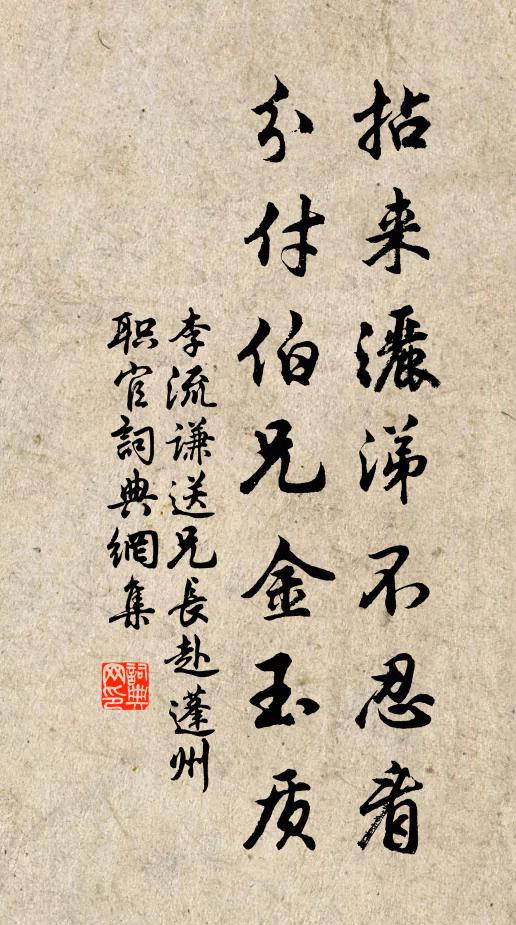 拈来灑涕不忍看
分付伯兄金玉质
李流谦送兄長赴蓬州
职官詞典網集
詞典
网印